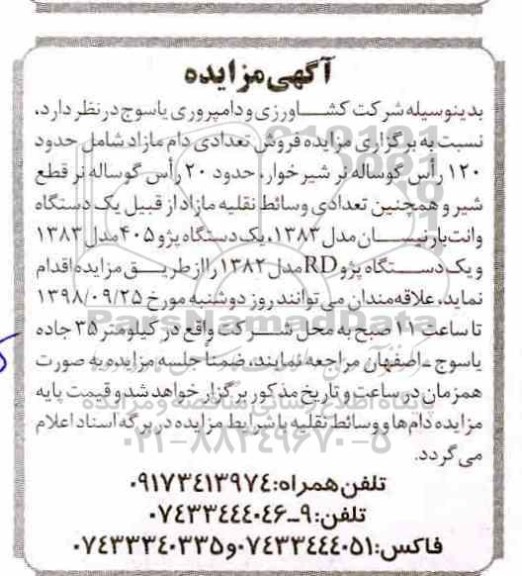 آگهی مزایده
بدینوسیله شرکت کشاورزی و دامپروری یاسوج در نظر دارد،
نسبت به برگزاری مزایده فروش تعدادی دام مازاد شامل حدود
۱۲۰ رأس گوساله نر شیرخوار، حدود ۲۰ رأس گوساله نر قطع
شیر و همچنین تعدادی وسائط نقلیه مازاد از قبیل یک دستگاه
وانت بار نیسان مدل ۱۳۸۳، یک دستگاه پژو ۴۰۵ مدل ۱۳۸۳
و یک دستگاه پژو RD مدل ۱۳۸۲ را از طریق مزایده اقدام
نماید، علاقه‌مندان می‌توانند روز دوشنبه مورخ ۱۳۹۸/۰۹/۲۵
تا ساعت ۱۱ صبح به محل شرکت واقع در کیلومتر ۳۵ جاده
یاسوج ـ اصفهان مراجعه نمایند، ضمناً جلسه مزایده به صورت
همزمان در ساعت و تاریخ مذکور برگزار خواهد شد و قیمت پایه
مزایده دام‌ها و وسائط نقلیه با شرایط مزایده در برگه اسناد اعلام
می‌گردد.
تلفن همراه: ۰۹۱۷۳۴۱۳۹۷۴
تلفن: ۹ـ۰۷۴۳۳۴۴۴۰۴۶
فاکس: ۰۷۴۳۳۴۴۴۰۵۱ و ۰۷۴۳۳۳۴۰۳۳۵
ParsNamadData
۰۲۱-۸۸۳۴۹۶۷۰-۵